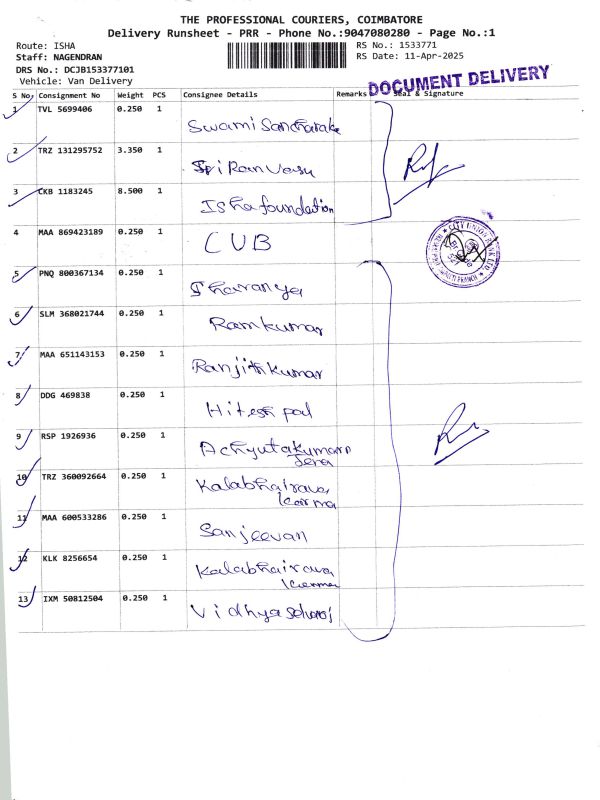 THE PROFESSIONAL COURIERS, COIMBATORE
Delivery Runsheet - PRR - Phone No.:9047080280 - Page No.:1
Route: ISHA
RS No.: 1533771
Staff: NAGENDRAN
RS Date: 11-Apr-2025
DRS No.: DCJB153377101
Vehicle: Van Delivery
DOCUMENT DELIVERY
S No. Consignment No Weight PCS Consignee Details Remarks Seal & Signature
1 TVL 5699406 0.250 1 Swami Sancharaka
2 TRZ 131295752 3.350 1 Sri Ran Vasu
3 CKB 1183245 8.500 1 Isha foundation
4 MAA 869423189 0.250 1 CUB
CITY UNION BANK LTD.
5 PNQ 800367134 0.250 1 Tharanya
6 SLM 368021744 0.250 1 Ramkumar
7 MAA 651143153 0.250 1 Ranjith kumar
8 DDG 469838 0.250 1 Hitesh pal
9 RSP 1926936 0.250 1 Achyutakumar
10 TRZ 360092664 0.250 1 Kalabhairava
karma
11 MAA 600533286 0.250 1 Sanjeevan
12 KLK 8256654 0.250 1 Kalabhairava
karma
13 IXM 50812504 0.250 1